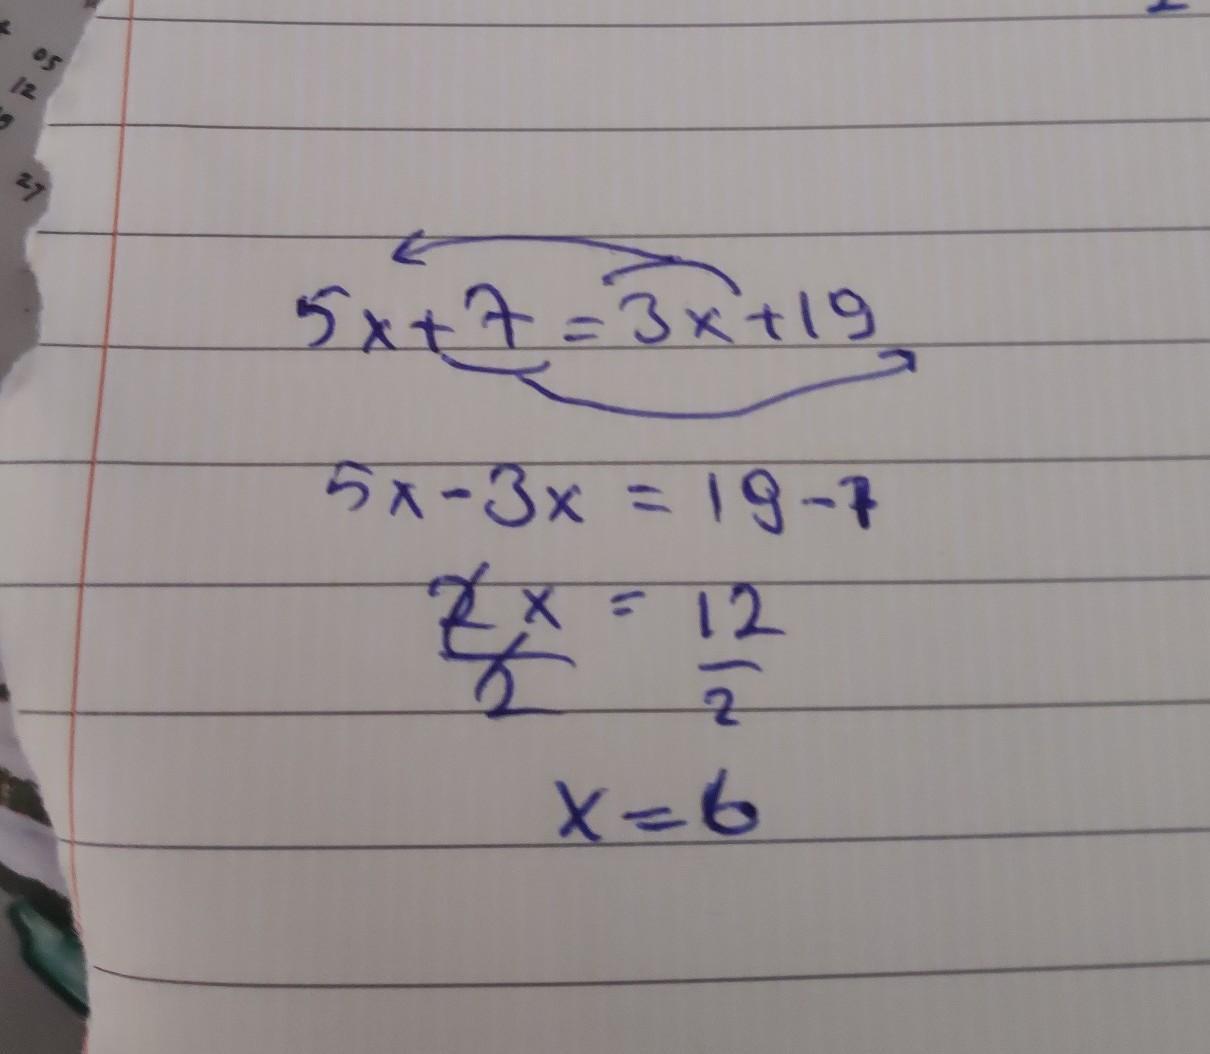 05
12
27
5x+7=3x+19
5x-3x = 19-7
2x = 12
2 2
x=6